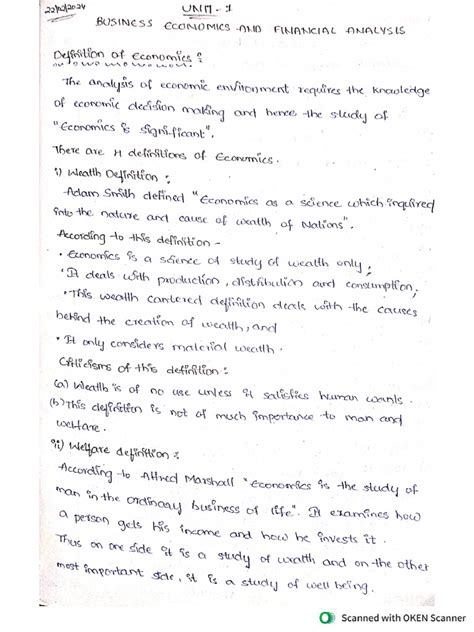 22/10/2024
UNIT - 1
BUSINESS ECONOMICS AND FINANCIAL ANALYSIS
Definition of Economics :
The analysis of economic environment requires the knowledge
of economic decision making and hence the study of
"Economics is significant".
There are 4 definitions of Economics.
i) Wealth Definition :
Adam Smith defined "Economics as a science which inquired
into the nature and cause of wealth of Nations".
According to this definition -
• Economics is a science of study of wealth only;
• It deals with production, distribution and consumption;
• This wealth centered definition deals with the causes
behind the creation of wealth, and
• It only considers material wealth.
Criticisms of this definition :
(a) Wealth is of no use unless it satisfies human wants.
(b) This definition is not of much importance to man and
welfare.
ii) Welfare definition :
According to Alfred Marshall "Economics is the study of
man in the ordinary business of life". It examines how
a person gets his income and how he invests it.
Thus on one side it is a study of wealth and on the other
most important side, it is a study of well being.
Scanned with OKEN Scanner